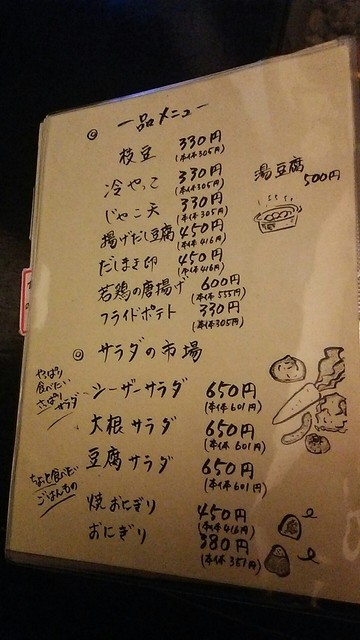 ◎ 一品メニュー
枝豆 330円
(本体305円)
冷やっこ 330円
(本体305円)
じゃこ天 330円
(本体305円)
揚げだし豆腐 450円
(本体416円)
だしまき卵 450円
(本体416円)
若鶏の唐揚げ 600円
(本体555円)
フライドポテト 330円
(本体305円)
湯豆腐
500円
◎ サラダの市場
やっぱり
食べたい
さっぱりサラダ
シーザーサラダ 650円
(本体601円)
大根サラダ 650円
(本体601円)
豆腐サラダ 650円
(本体601円)
ちょっと食べたい
ごはんもの
焼おにぎり 450円
(本体416円)
おにぎり 380円
(本体351円)